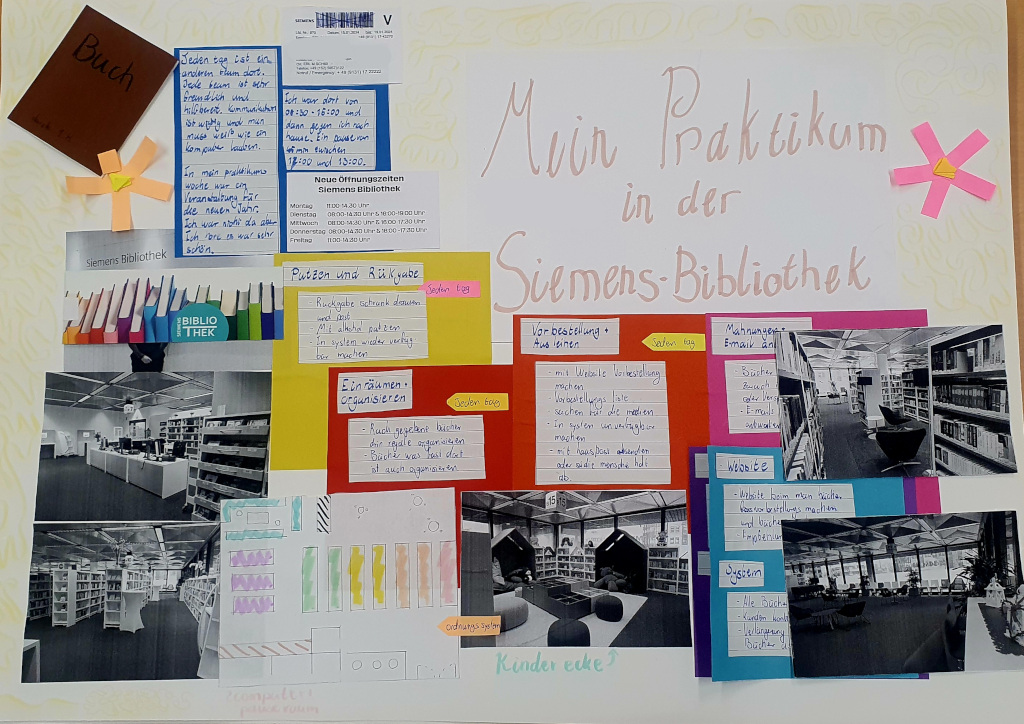 Buch
SIEMENS
V
Jeden tag ist ein
anderen
dort.
Jede team ist sehr
freundlich und
hilfbereit. Kommunikation
ist witig und man
muss weiß wie ein
Komputer
In mein praktikums
woche war ein
Veranstaltung für
die neuem Jahr.
Ich war nicht da aber
Ich es war sehr
schön.
Ich war dort von
08:30 - 16:00 und
dann gegen ich nach
hause. Ein pause von
45 min zwischen
und 13:00.
Neue Öffnungszeiten
Siemens Bibliothek
Montag 11:00-14.30 Uhr
Dienstag 08:00-14.30 Uhr & 16:00-19:00 Uhr
Mittwoch 08:00-14.30 Uhr & 16:00-17:30 Uhr
Donnerstag 08:00-14:30 Uhr & 16:00-17:30 Uhr
Freitag 11:00-14.30 Uhr
Mein Praktikum
in der
Siemens-Bibliothek
Siemens Bibliothek
SIEMENS
BIBLIO
THEK
Putzen und Rükgabe
Jeden tag
- Rückgabe schrank draußen
und post
- Mit alkohol putzen
- In system wieder verfüg
bar machen
Einräumen +
organisieren
Jeden tag
- Ruch gegebene bücher
drin regale organisieren
- Bücher was fast dort
ist auch organisieren
Vorbestellung +
Ausleihen
Jeden tag
- mit Website Vorbestellung
machen
- Vorbestellungs liste
- suchen für die medien
- In system unverfügbar
machen
- mit hauspost absenden
oder die mensche holt
ab.
Mahnungen +
E-mail
- Bücher
- E-mails
Website
- Website beim man
machen
und büche
System
- Alle Büch
- Kunden
- Verlängerung
Bücher
15
15
ordnungs system
Kinder ecke